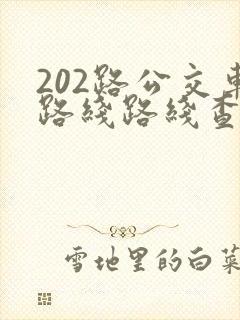 202路公交車
路綫路綫查
雪地里的白菜